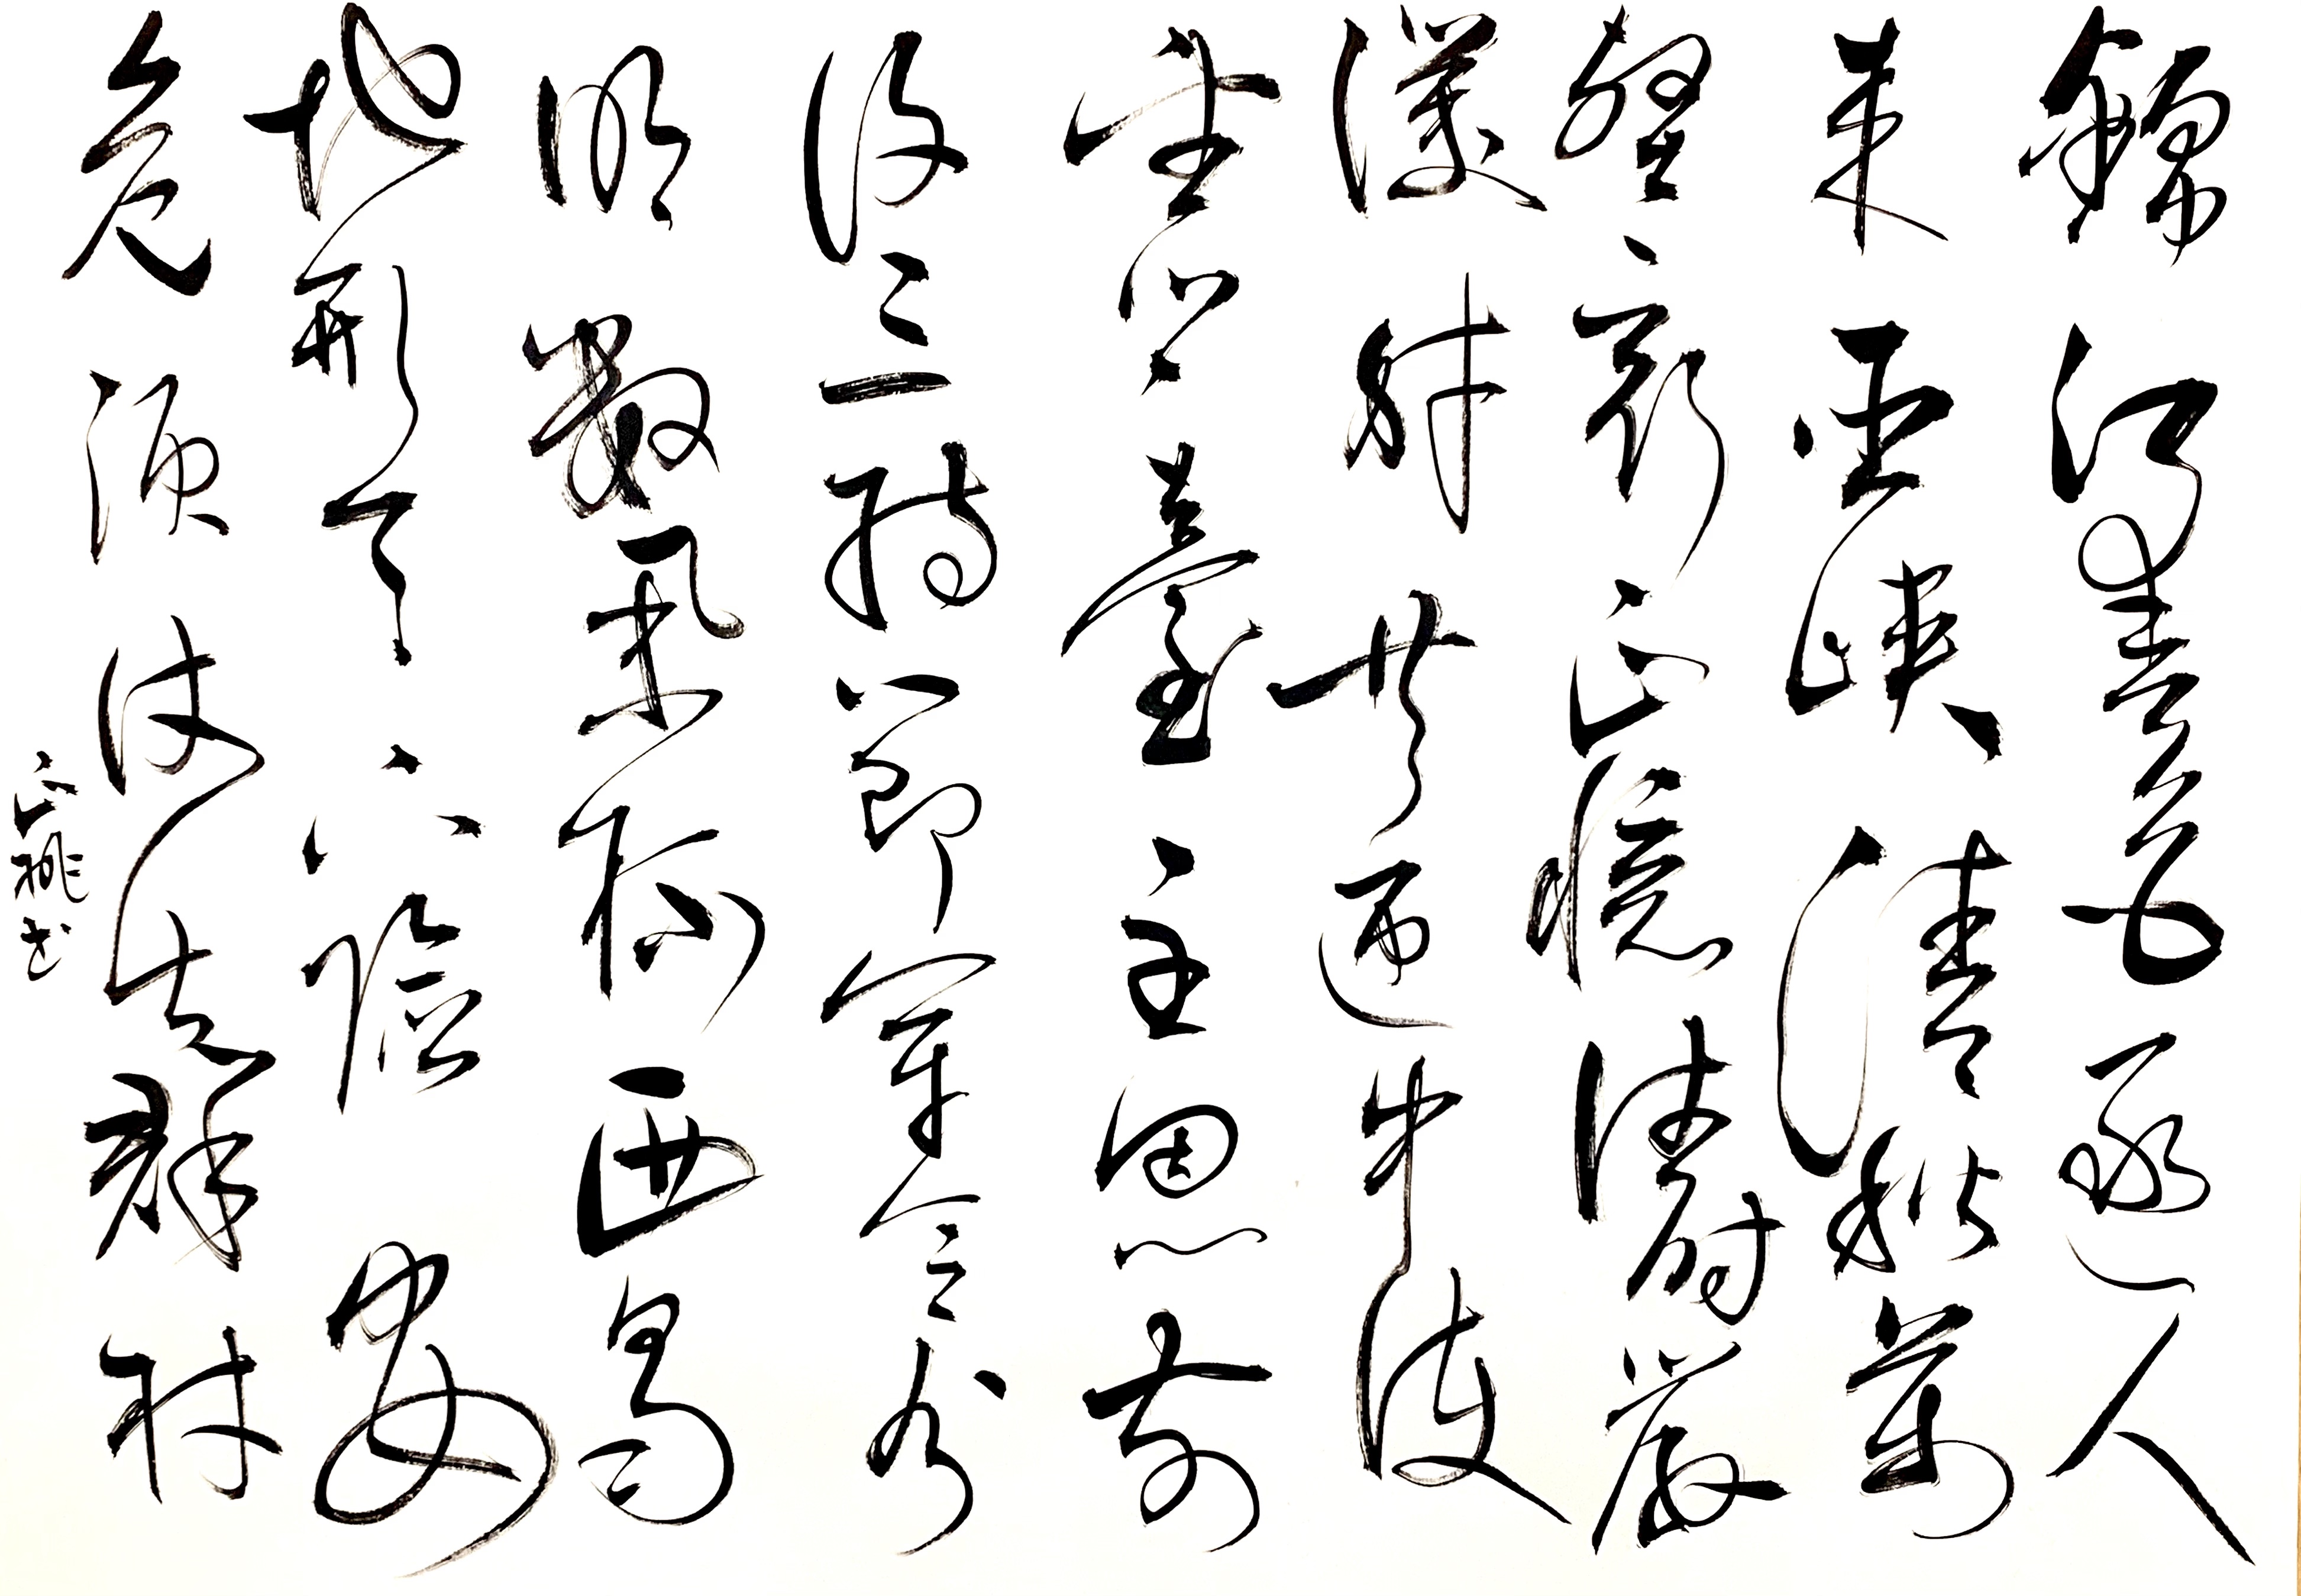 錦江春色逐人
來巫峽清秋萬
壑哀正憶往時嚴
僕射共迎中使
望鄉臺主恩前
後三持節軍令分
明數舉杯西蜀
地形天下險安
危須仗出群材